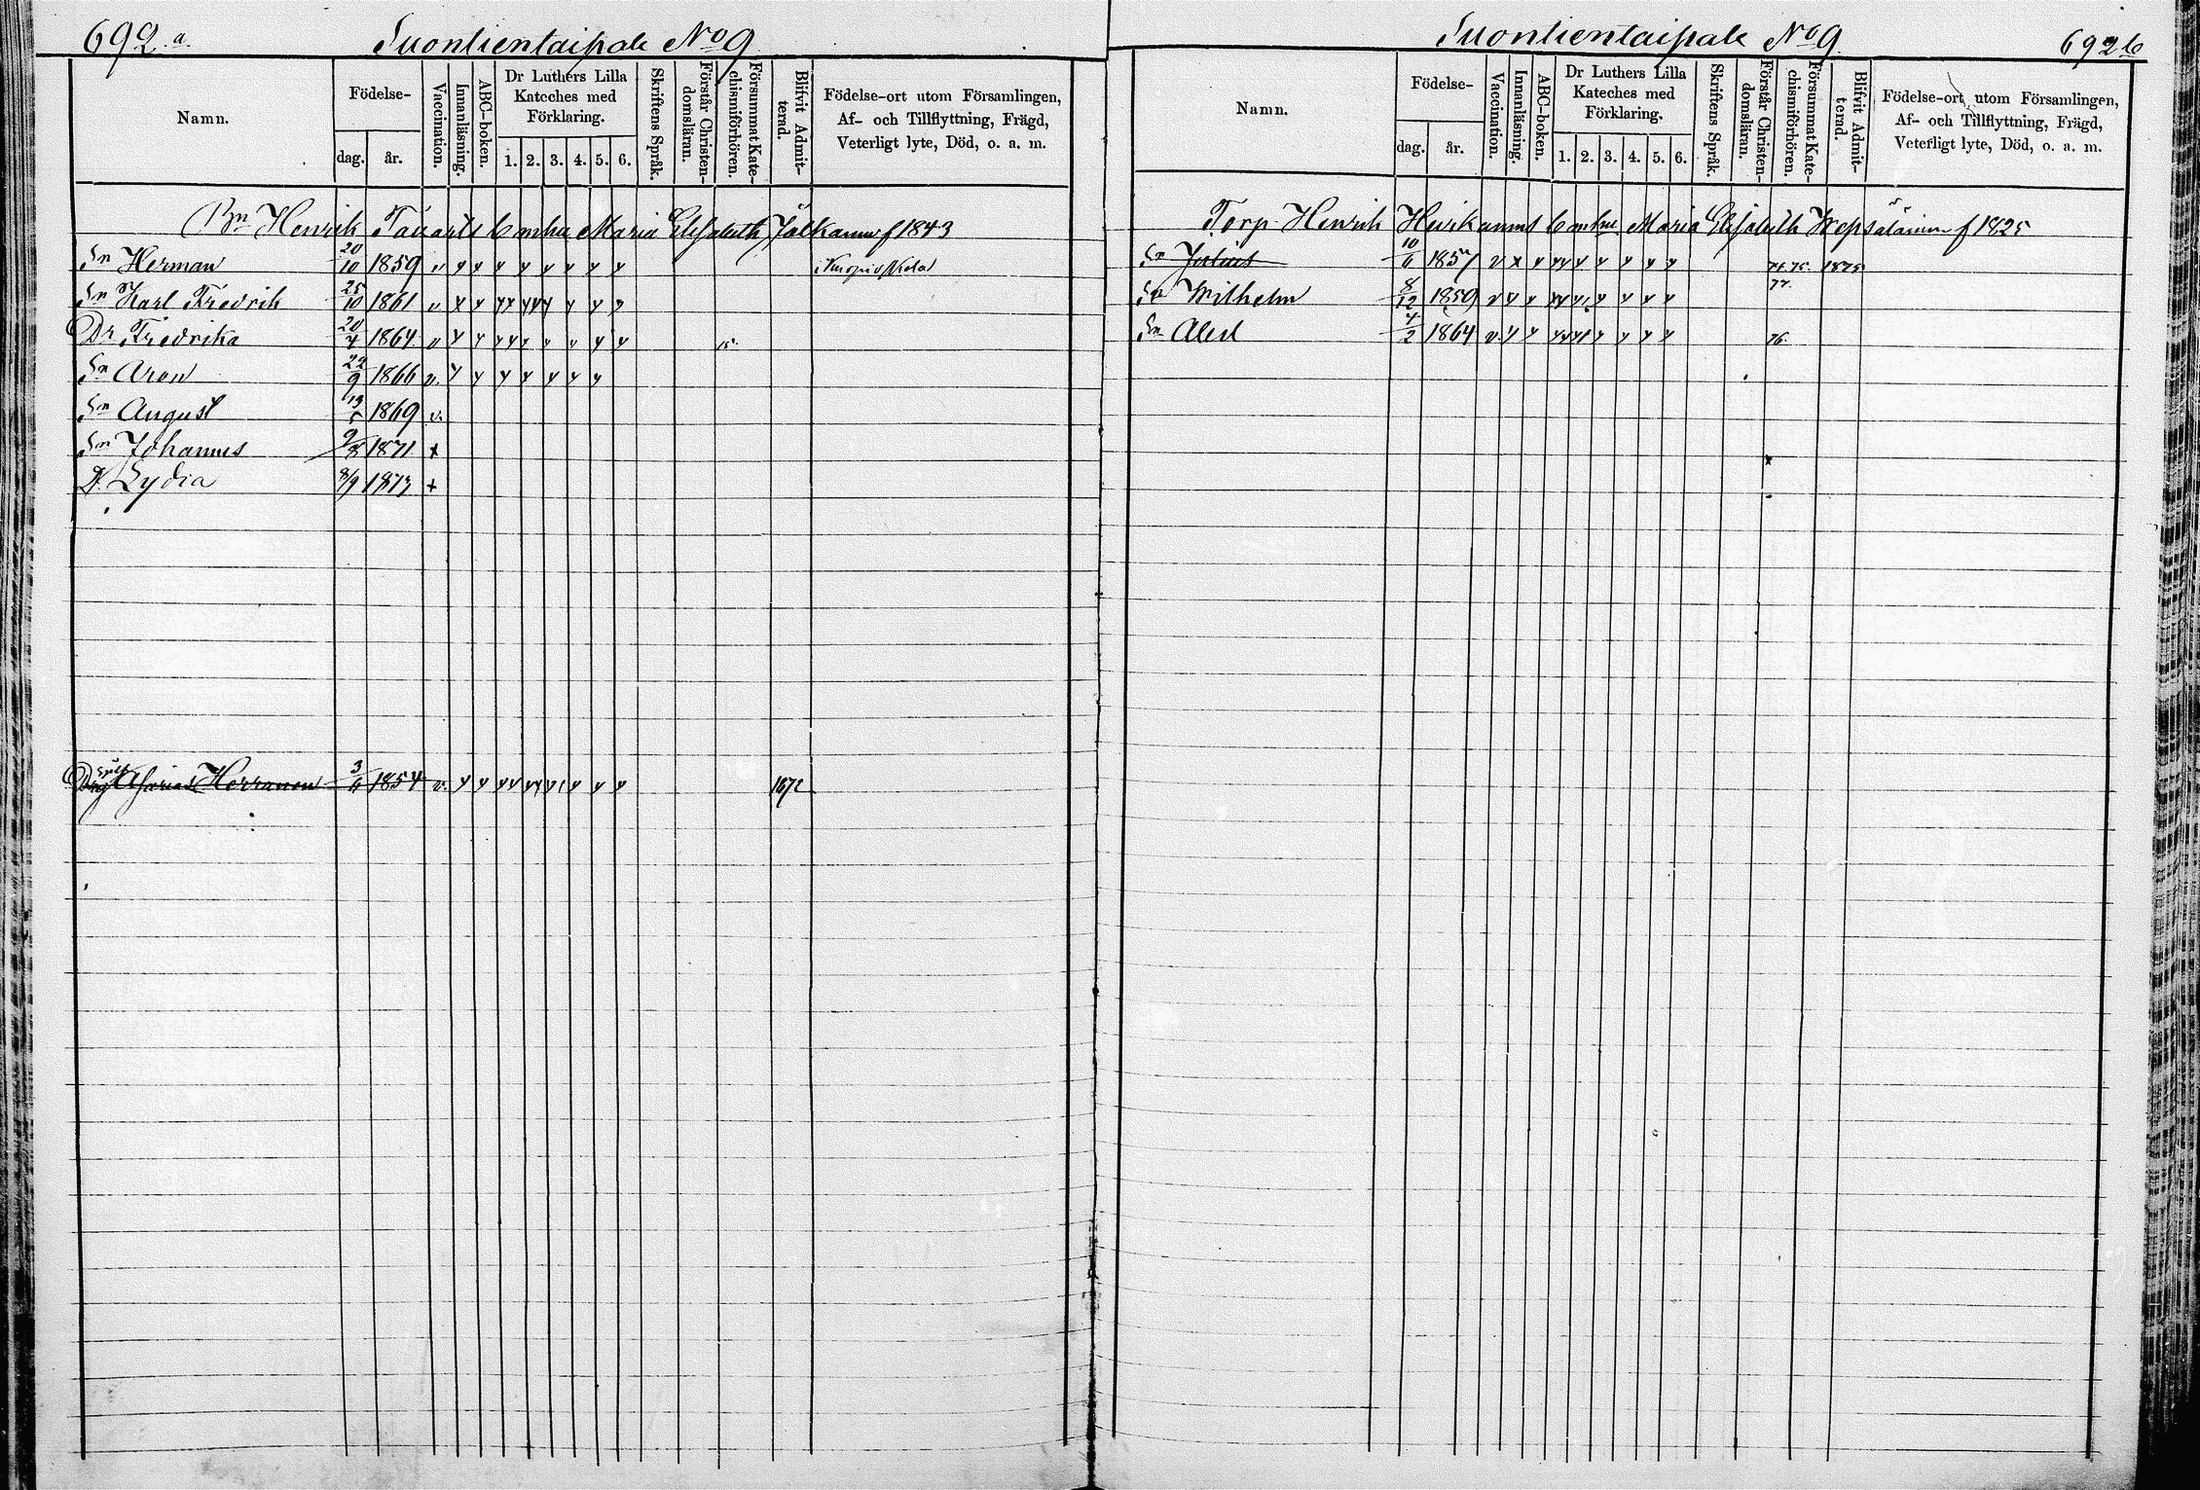 692 a.
Suontientaipale No 9
Namn.
Födelse-
dag.
år.
Vaccination.
Innanläsning.
ABC-boken.
Dr Luthers Lilla
Kateches med
Förklaring.
1. 2. 3. 4. 5. 6.
Skriftens Språk.
Förstår Christen-
domsläran.
Försummat Kate-
chismiförhören.
Blifvit Admit-
terad.
Födelse-ort utom Församlingen,
Af- och Tillflyttning, Frägd,
Veterligt lyte, Död, o. a. m.
Bn Henrik Maria Elisabeth f 1843
Sn Herman 20/10 1859 v y y y y y y y y
Sn Karl Fredrik 25/10 1861
Dr Fredrika 20/4 1864
Sn Aron 22/9 1866 v. y y y y y y y
Sn August 13/5 1869 v.
Sn Johannes 9/8 1871 x
D. Lydia 8/9 1873 x
Herranen 3/6 1854 v. 1872
Suontientaipale No 9
692 b
Namn.
Födelse-
dag.
år.
Vaccination.
Innanläsning.
ABC-boken.
Dr Luthers Lilla
Kateches med
Förklaring.
1. 2. 3. 4. 5. 6.
Skriftens Språk.
Förstår Christen-
domsläran.
Försummat Kate-
chismiförhören.
Blifvit Admit-
terad.
Födelse-ort utom Församlingen,
Af- och Tillflyttning, Frägd,
Veterligt lyte, Död, o. a. m.
Torp. Henrik Maria Elisabeth Wepsäläinen f 1825
Sn Julius 10/6 1857 74 75. 1875
Sn Wilhelm 8/12 1859 77.
Sn Abel 4/2 1864 76.